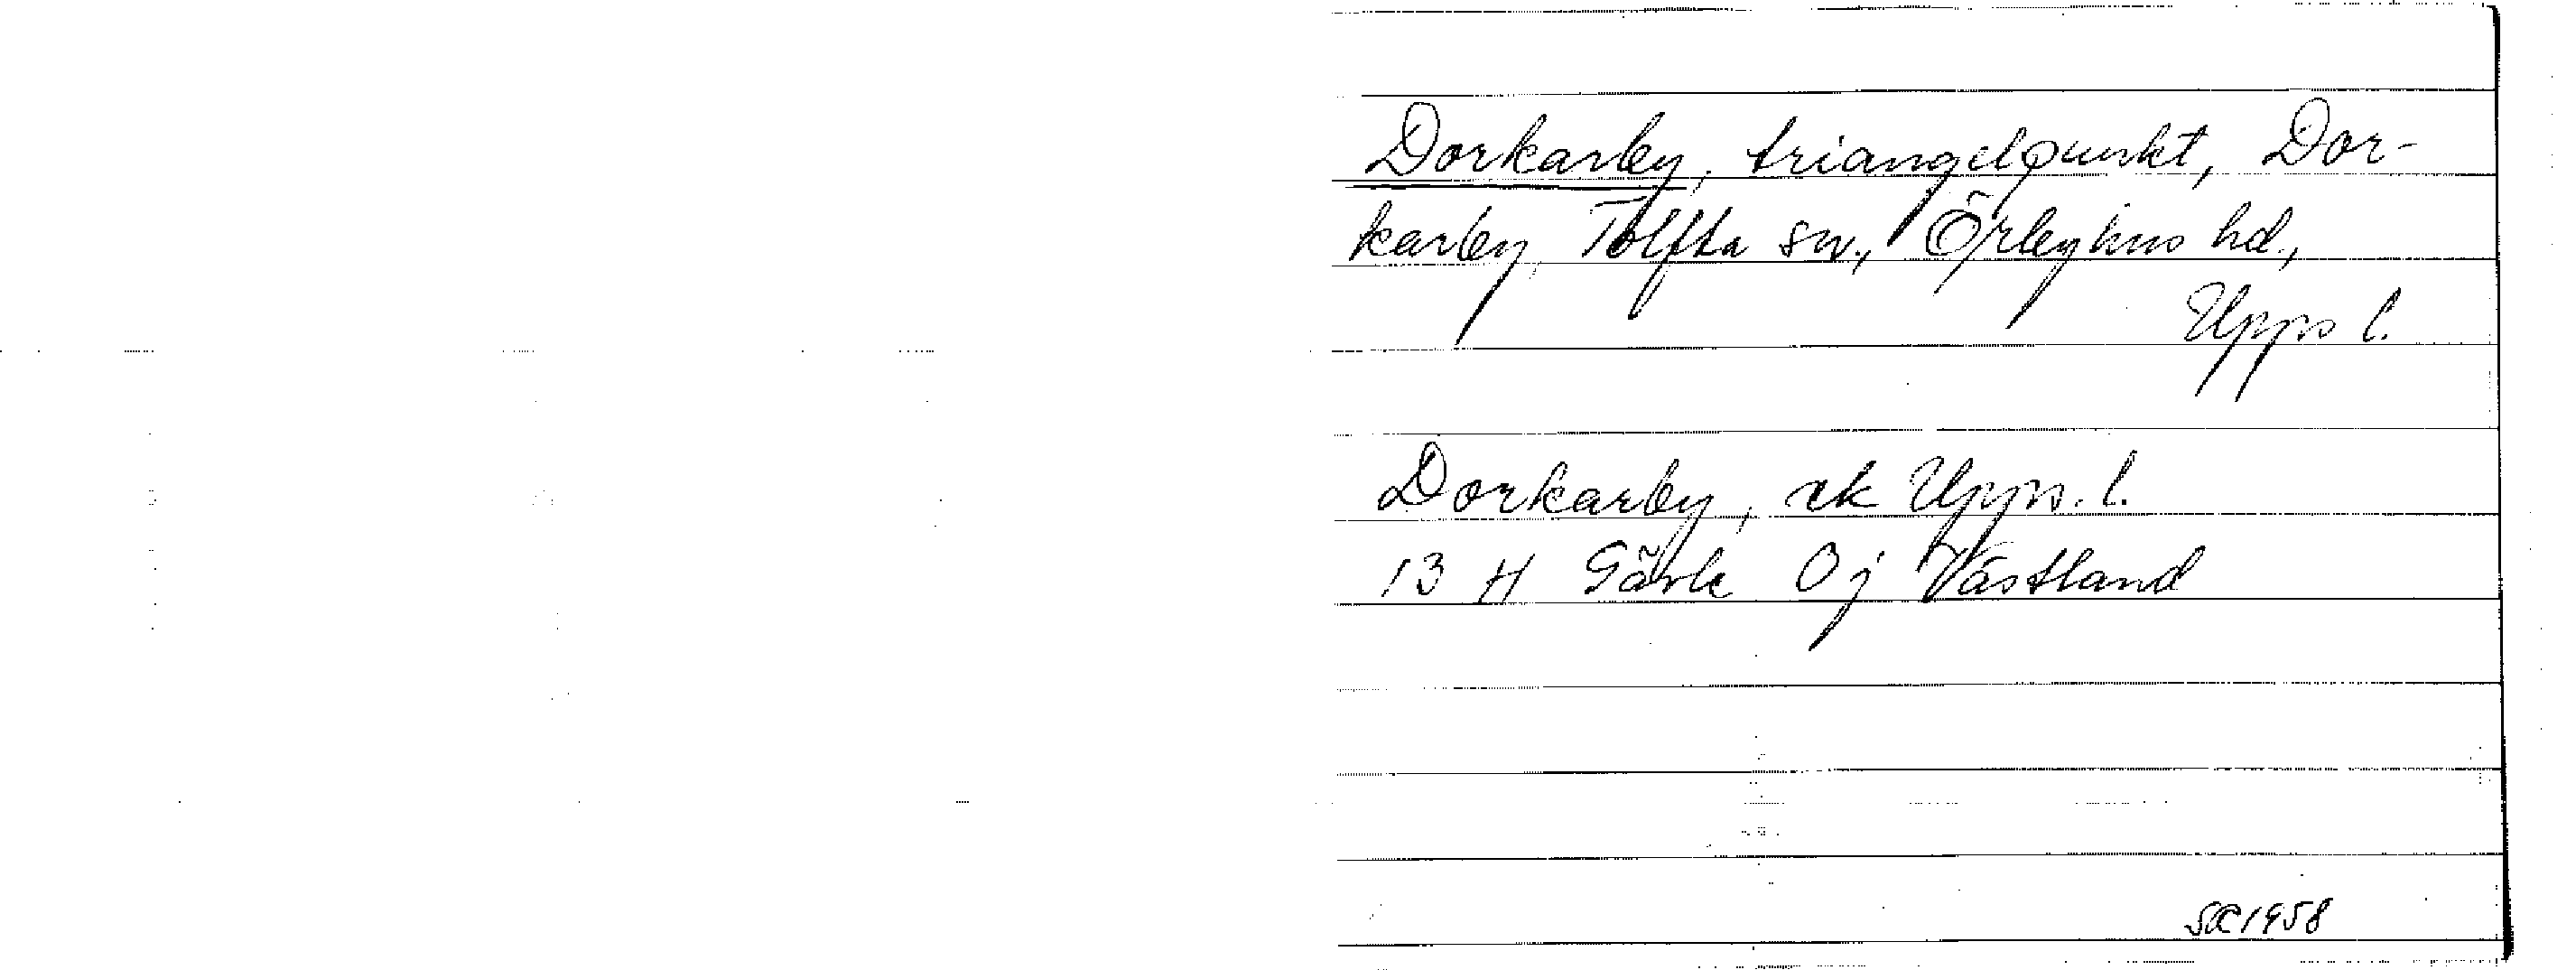 Dorkarby, triangelpunkt, Dor-
karby, Tolfta sn., Örbyhus hd.,
Upps l.
Dorkarby, ek Upps. l.
13 H Gävle 0 j Västland
SC 1958